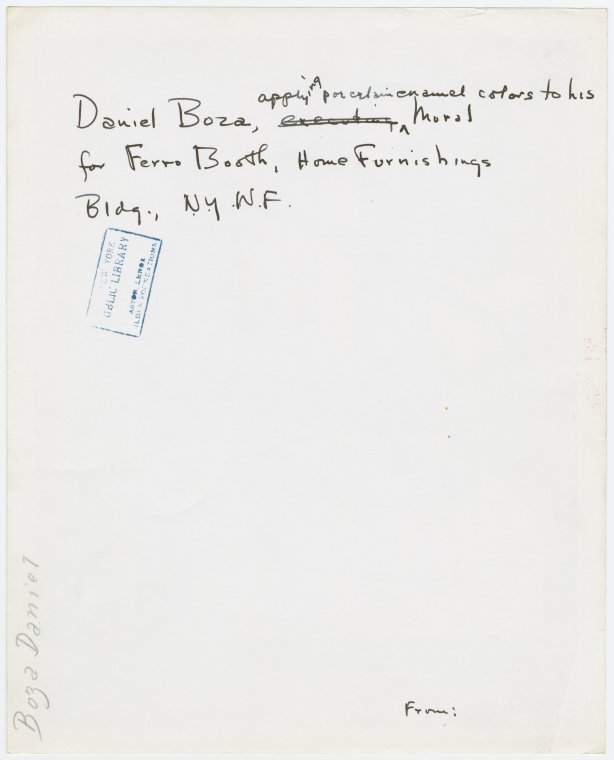 applying porcelain enamel colors to his
Daniel Boza, executing Mural
for Ferro Booth, Home Furnishings
Bldg., NY W.F.
NEW YORK
PUBLIC LIBRARY
ASTOR LENOX
TILDEN FOUNDATIONS
Boza Daniel
From: